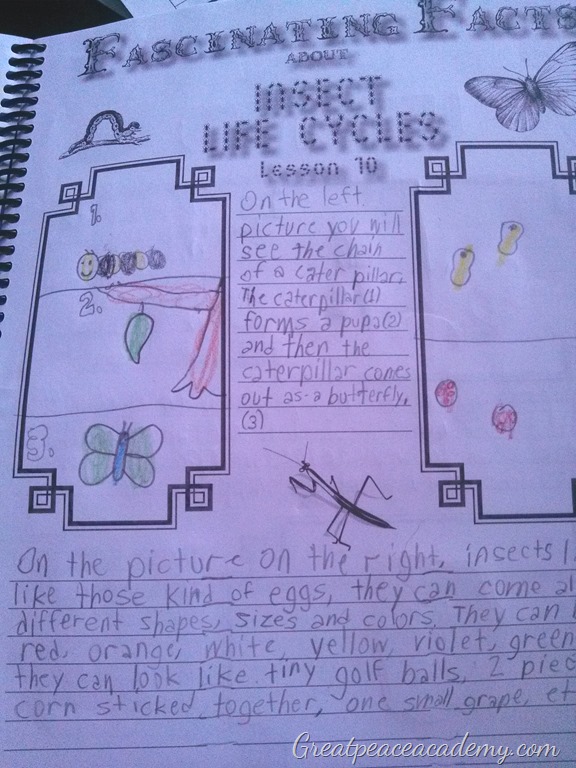 FASCINATING FACTS
ABOUT
INSECT
LIFE CYCLES
Lesson 10
1.
2.
3.
On the left
picture you will
see the chain
of a cater pillar.
The caterpillar(1)
forms a pupa(2)
and then the
caterpillar comes
out as a butterfly,
(3)
On the picture on the right, insects l
like those kind of eggs, they can come al
different shapes, sizes and colors. They can
red, orange, white, yellow, violet, green
they can look like tiny golf balls, 2 piec
corn sticked together, one small grape, et
Greatpeaceacademy.com